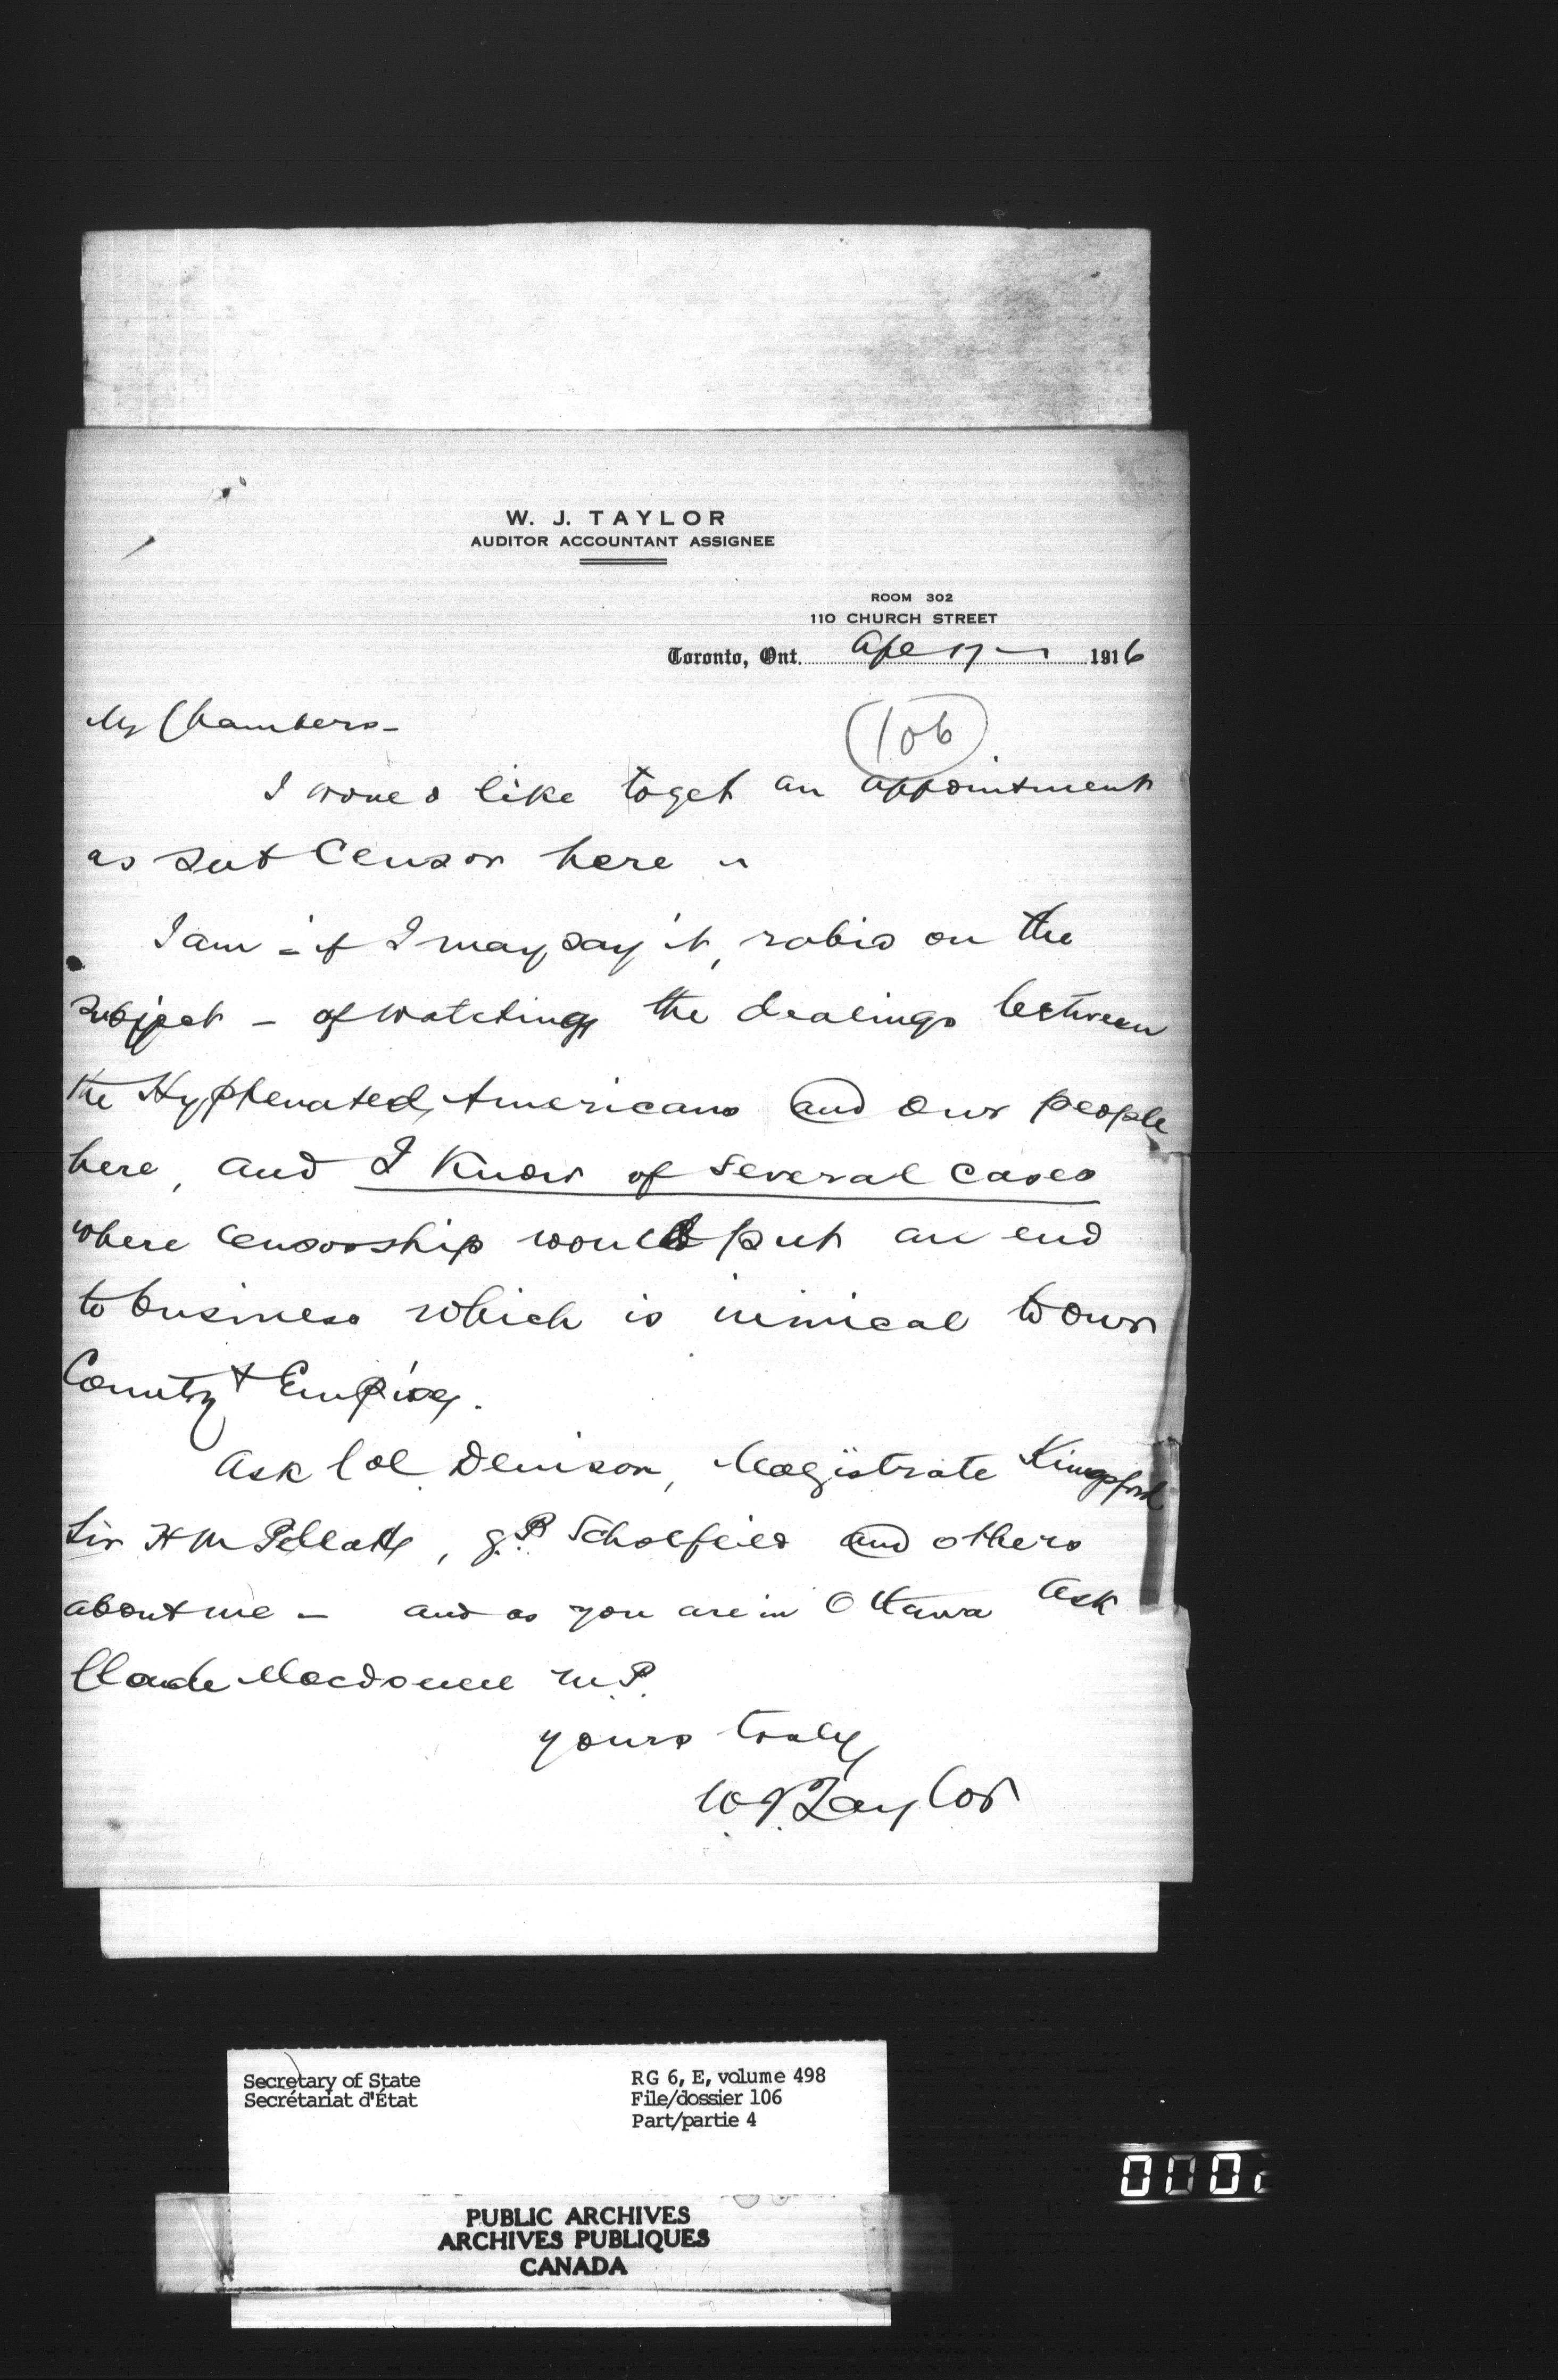 W. J. TAYLOR
AUDITOR ACCOUNTANT ASSIGNEE
ROOM 302
110 CHURCH STREET
Toronto, Ont. Apl 17 — 1916
Mr Chambers –
106
I would like to get an appointment
as Sub Censor here –
I am – if I may say it, rabid on the
subject – of watching the dealings between
the Hyphenated Americans and our people
here, and I know of several cases
where censorship would put an end
to business which is inimical to our
Country & Empire.
Ask Col Denison, Magistrate Kingsford
Sir H M Pellatt, G.P. Scholfield and others
about me – and as you are in Ottawa Ask
Claude Macdonell M.P.
yours truly
W.J. Taylor
Secretary of State
Secrétariat d'État
RG 6, E, volume 498
File/dossier 106
Part/partie 4
PUBLIC ARCHIVES
ARCHIVES PUBLIQUES
CANADA
000